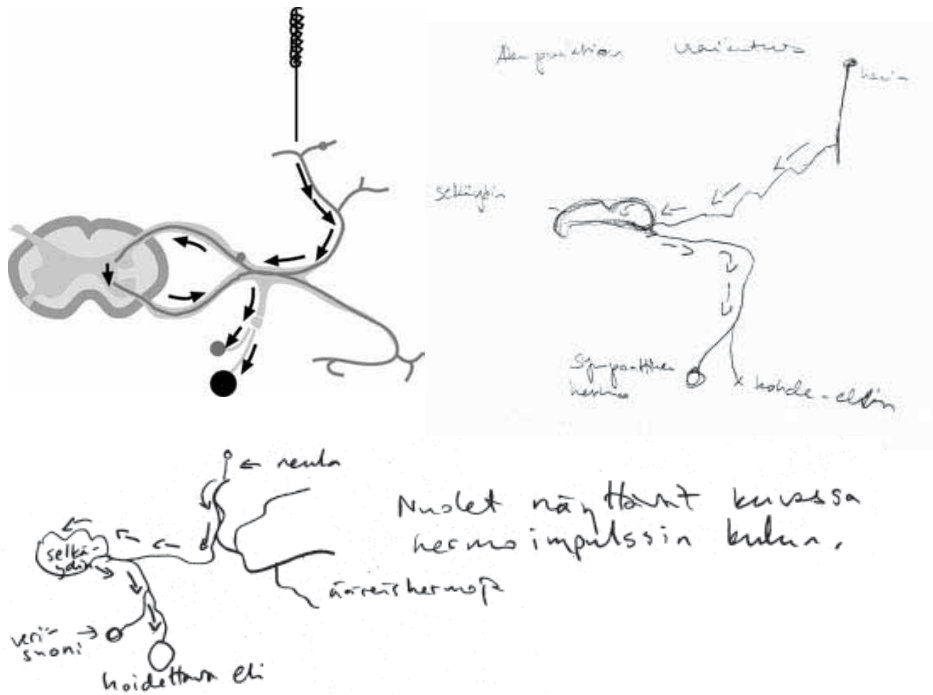 selkäydin
Sympaattinen
hermo
kohde-elin
← neula
selkä-
ydin
ääreishermoja
veri-
suoni
hoidettava eli
Nuolet näyttävät kuvassa
hermoimpulssin kulun.